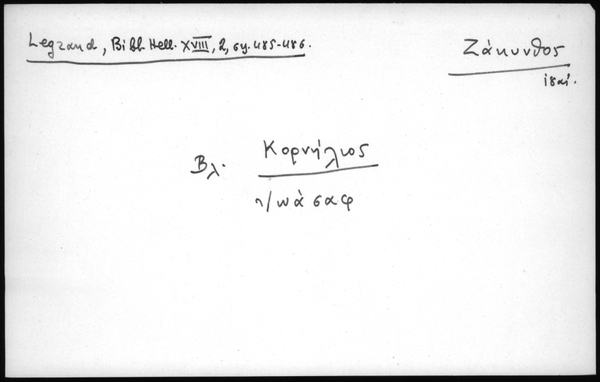 Legrand, Bibl. Hell. XVIII, 2, σγ. 485-486.
Ζάκυνθος
ιδαί.
Βλ. Κορνήλιος
Ἰωάσαφ